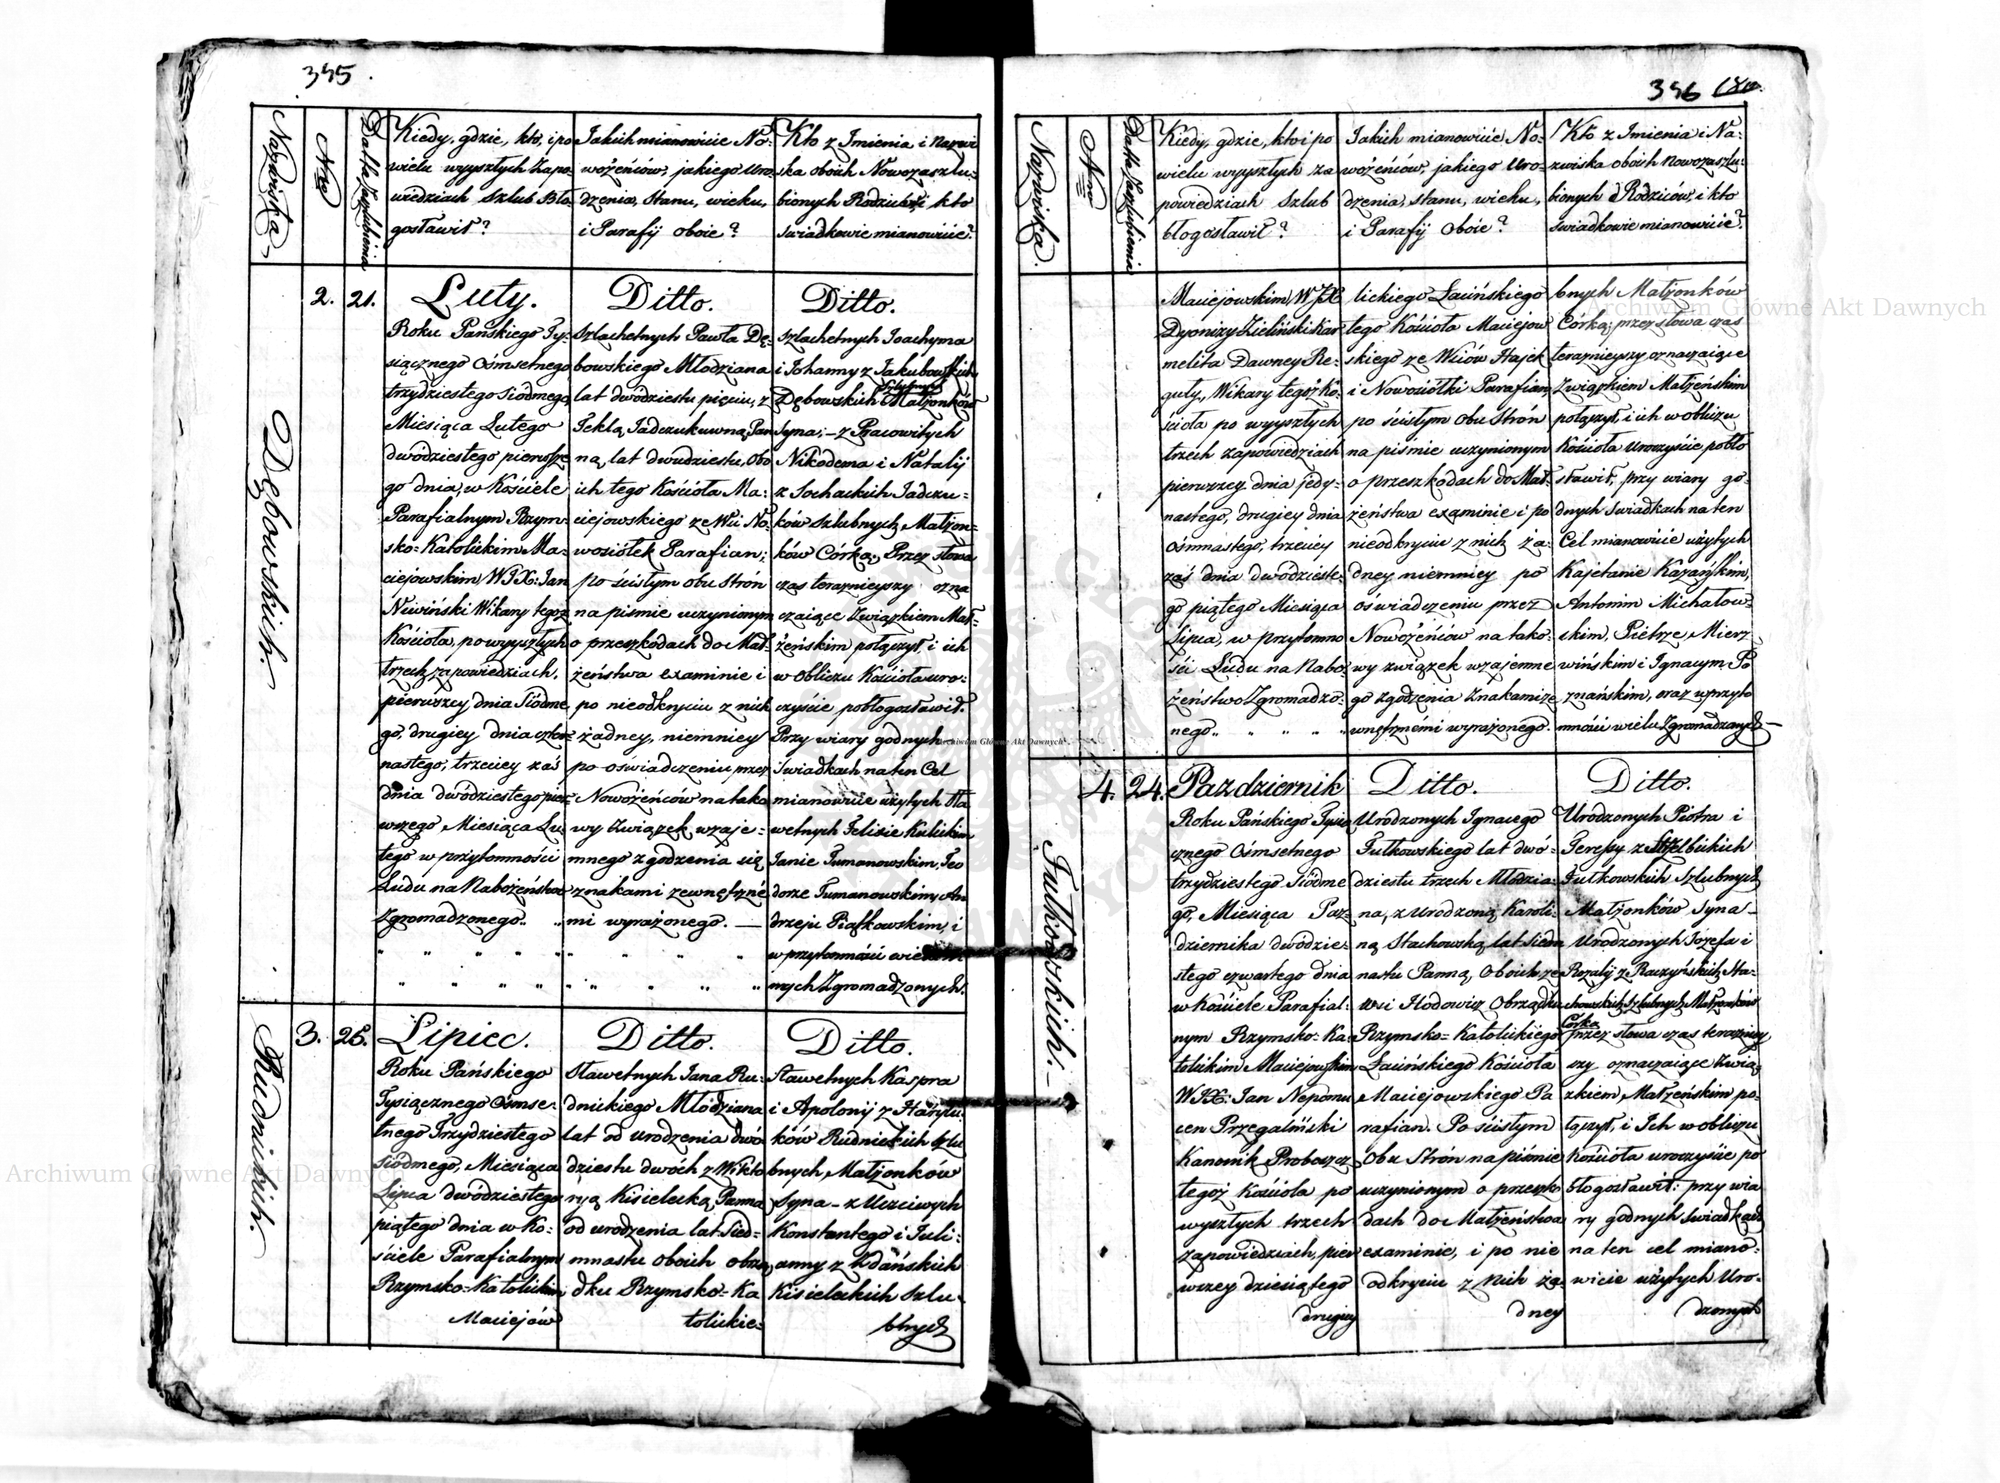 345.
Nazwiska
Nro
Datta Zaszlubienia
Kiedy, gdzie, kto, i po
wielu wyszłych Zapo
wiedziach Szlub Bło
gosławił?
Jakich mianowicie No-
wożeńców, jakiego Uro
dzenia, Stanu, wieku,
i Parafij oboie?
Kto z Imienia i Nazwi
ska oboich Nowozaszlu-
bionych Rodziców i kto
świadkowie mianowicie?
Dębowskich.
2.
21.
Luty.
Roku Pańskiego Ty-
siącznego Ośmsetnego
trzydziestego Siódmego
Miesiąca Lutego
dwódziestego pierwsze
go dnia, w Kościele
Parafialnym Rzym-
sko-Katolickim Ma-
ciejowskim WJX: Jan
Niwiński Wikary tegoż
Kościoła, po wyszłych
trzech zapowiedziach,
pierwszey dnia Siódme
go, drugiey dnia czter-
nastego, trzeciey zaś
dnia dwódziestego pier-
wszego Miesiąca Lu-
tego w przytomności
Ludu na Nabożeństwo
Zgromadzonego.
Ditto.
Szlachetnych Pawła Dę-
bowskiego Młodziana
lat dwódziestu pięciu, z
Teklą Jadczukuwną Pan
ną, lat dwudziestu, Obo
ich tego Kościoła Ma-
ciejowskiego ze Wsi No-
wosiółek Parafian;
po ścisłym obu Strón
na pismie uczynionym
o przeszkodach do Mał-
żeństwa examinie i
po nieodkryciu z nich
żadney, niemniey
po oświadczeniu przez
Nowożeńców na tako
wy Związek wzaje-
mnego zgodzenia się
znakami zewnętrzne
mi wyrażonego. —
Ditto.
Szlachetnych Joachyma
i Johanny z Jakubowskich
Szlubnych
Dębowskich Małżonków
Syna; - z Pracowitych
Nikodema i Natalij
z Sochackich Jadczu-
ków Szlubnych Małżon-
ków Córką; Przez słowa
czas teraznieyszy ozna
czaiące Związkiem Mał-
żeńskim połączył, i ich
w obliczu Kościoła uro-
czyście pobłogosławił.
Przy wiary godnych
Swiadkach na ten Cel
mianowicie użytych Sła
wetnych Felixie Kulickim
Janie Tumanowskim, Teo
dorze Tumanowskim, An
drzeju Piątkowskim, i
w przytomności wielu
nnych Zgromadzonych.
Rudnickich.
3.
25.
Lipiec.
Roku Pańskiego
Tysiącznego Ośmse-
tnego Trzydziestego
Siódmego, Miesiąca
Lipca dwódziestego
piątego dnia w Ko-
ściele Parafialnym
Rzymsko-Katolickim
Maciejow
Ditto.
Sławetnych Jana Ru-
dnickiego Młodziana
lat od urodzenia dwó
dziestu dwóch z Wikto
ryą Kisielecką Panna
od urodzenia lat Sied-
mnastu oboich obrzą
dku Rzymsko-Ka
tolickie-
Ditto.
Sławetnych Kaspra
i Apolonij z Harylu
ków Rudnickich Szlu
bnych Małżonków
Syna - z Uczciwych
Konstantego i Juli-
anny z Zdańskich
Kisieleckich Szlu-
bnych
346
Nazwiska.
Nro
Datta Zaszlubienia
Kiedy, gdzie, kto i po
wielu wyszłych za
powiedziach Szlub
błogosławił?
Jakich mianowicie No-
wożeńców, jakiego Uro-
dzenia, stanu, wieku,
i Parafij Oboie?
Kto z Imienia i Na-
zwiska oboich nowozaszlu-
bionych Rodziców, i kto
świadkowie mianowicie?
Maciejowskim, WJX
Dyonizy Zieliński Kar
melita Dawney Re-
guły, Wikary tegoż Ko-
ścioła po wyszłych
trzech zapowiedziach
pierwszey dnia jedy-
nastego, drugiey dnia
ośmnastego, trzeciey
zaś dnia dwódzieste-
go piątego Miesiąca
Lipca, w przytomno
ści Ludu na Nabo-
żeństwo Zgromadzo-
nego
lickiego Łacińskiego
tego Kościoła Maciejow
skiego ze Wsiów Hajek
i Nowosiółki Parafian,
po ścisłym Obu Strón
na piśmie uczynionym
o przeszkodach do Mał-
żeństwa examinie i po
nieodkryciu z nich ża-
dney niemniey po
oświadczeniu przez
Nowożeńców na tako-
wy związek wzajemne
go zgodzenia Znakami ze
wnętrznémi wyrażonego.
bnych Małżonków
Córką; przez słowa czas
teraznieyszy oznaczaiące
Związkiem Małżeńskim
połączył, i ich w obliczu
Kościoła Uroczyście pobło
sławił, przy wiary go-
dnych Swiadkach na ten
Cel mianowicie użytych
Kajetanie Kazańskim,
Antonim Michałow-
skim, Piotrze Mierz
wińskim i Ignacym Po
znańskim, oraz w przyto
mności wielu Zgromadzonych —
Tutkowskich. —
4.
24.
Pazdziernik
Roku Pańskiego Tysią
cznego Ośmsetnego
trzydziestego Siódme
go, Miesiąca Paz-
dziernika dwódzie-
stego czwartego dnia
w Kościele Parafial-
nym Rzymsko-Ka-
tolickim Maciejowskim
WJX: Jan Nepomu
cen Przegaliński
Kanonik Proboszcz
tegoż Kościoła po
wyszłych trzech
Zapowiedziach, pier
wszey dziesiątego
drugiey
Ditto.
Urodzonych Ignacego
Tutkowskiego lat dwó-
dziestu trzech Młodzia-
na, z Urodzoną Karoli-
ną Stachowską, lat Siedm
nastu Panną, Oboich ze
wsi Hodowicz Obrządku
Rzymsko-Katolickiego
Łacińskiego Kościoła
Maciejowskiego Pa
rafian. Po ścisłym
Obu Strón na piśmie
uczynionym o przeszko
dach do Małżeństwa
examinie, i po nie
odkryciu z Nich ża-
dney
Ditto.
Urodzonych Piotra i
Teressy z Strzelbickich
Tutkowskich Szlubnych
Małżonków Syna —
Urodzonych Jozefa i
Rozalij z Raczyńskich Sta-
chowskich Szlubnych Małżonków
Córką
przez słowa czas teraznie
szy oznaczaiące Zwią
zkiem Małżeńskim po-
łączył, i Ich w obliczu
Kościoła uroczyście po
błogosławił: przy wia
ry godnych Swiadkach
na ten cel miano-
wicie użytych Uro-
dzonych
Archiwum Główne Akt Dawnych
Archiwum Główne Akt Dawnych
Archiwum Główne Akt Dawnych